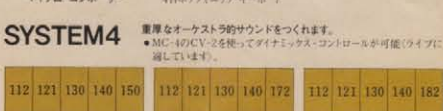 SYSTEM4
重厚なオーケストラ的サウンドをつくれます。
●MC-4のCV-2を使ってダイナミックス・コントロールが可能(ライブに
適しています)。
112 121 130 140 150 112 121 130 140 172 112 121 130 140 182